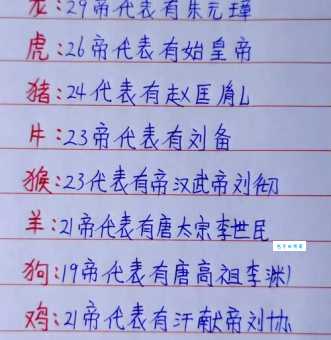 龙:29帝代表有朱元璋
虎:26帝代表有始皇帝
猪:24代表有赵匡胤
牛:23帝代表有刘备
猴:23代表有帝汉武帝刘彻
羊:21帝代表有唐太宗李世民
狗:19帝代表有唐高祖李渊
鸡:21帝代表有汗献帝刘协